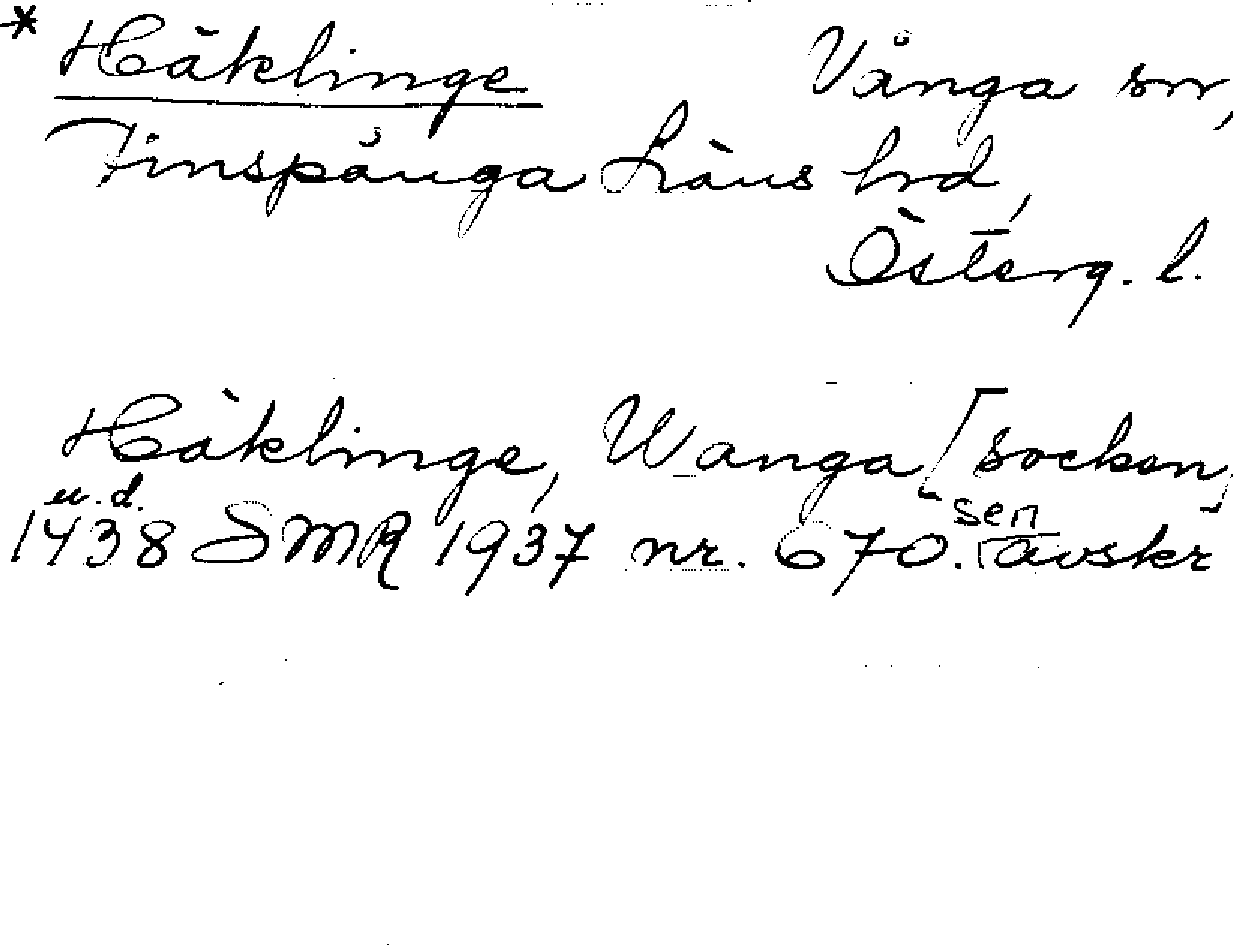 * Häklinge Vånga sn,
Finspånga Läns hrd,
Österg. l.
Häklinge, Wanga [socken]
u.d.
1438 SMR 1937 nr. 670. sen avskr